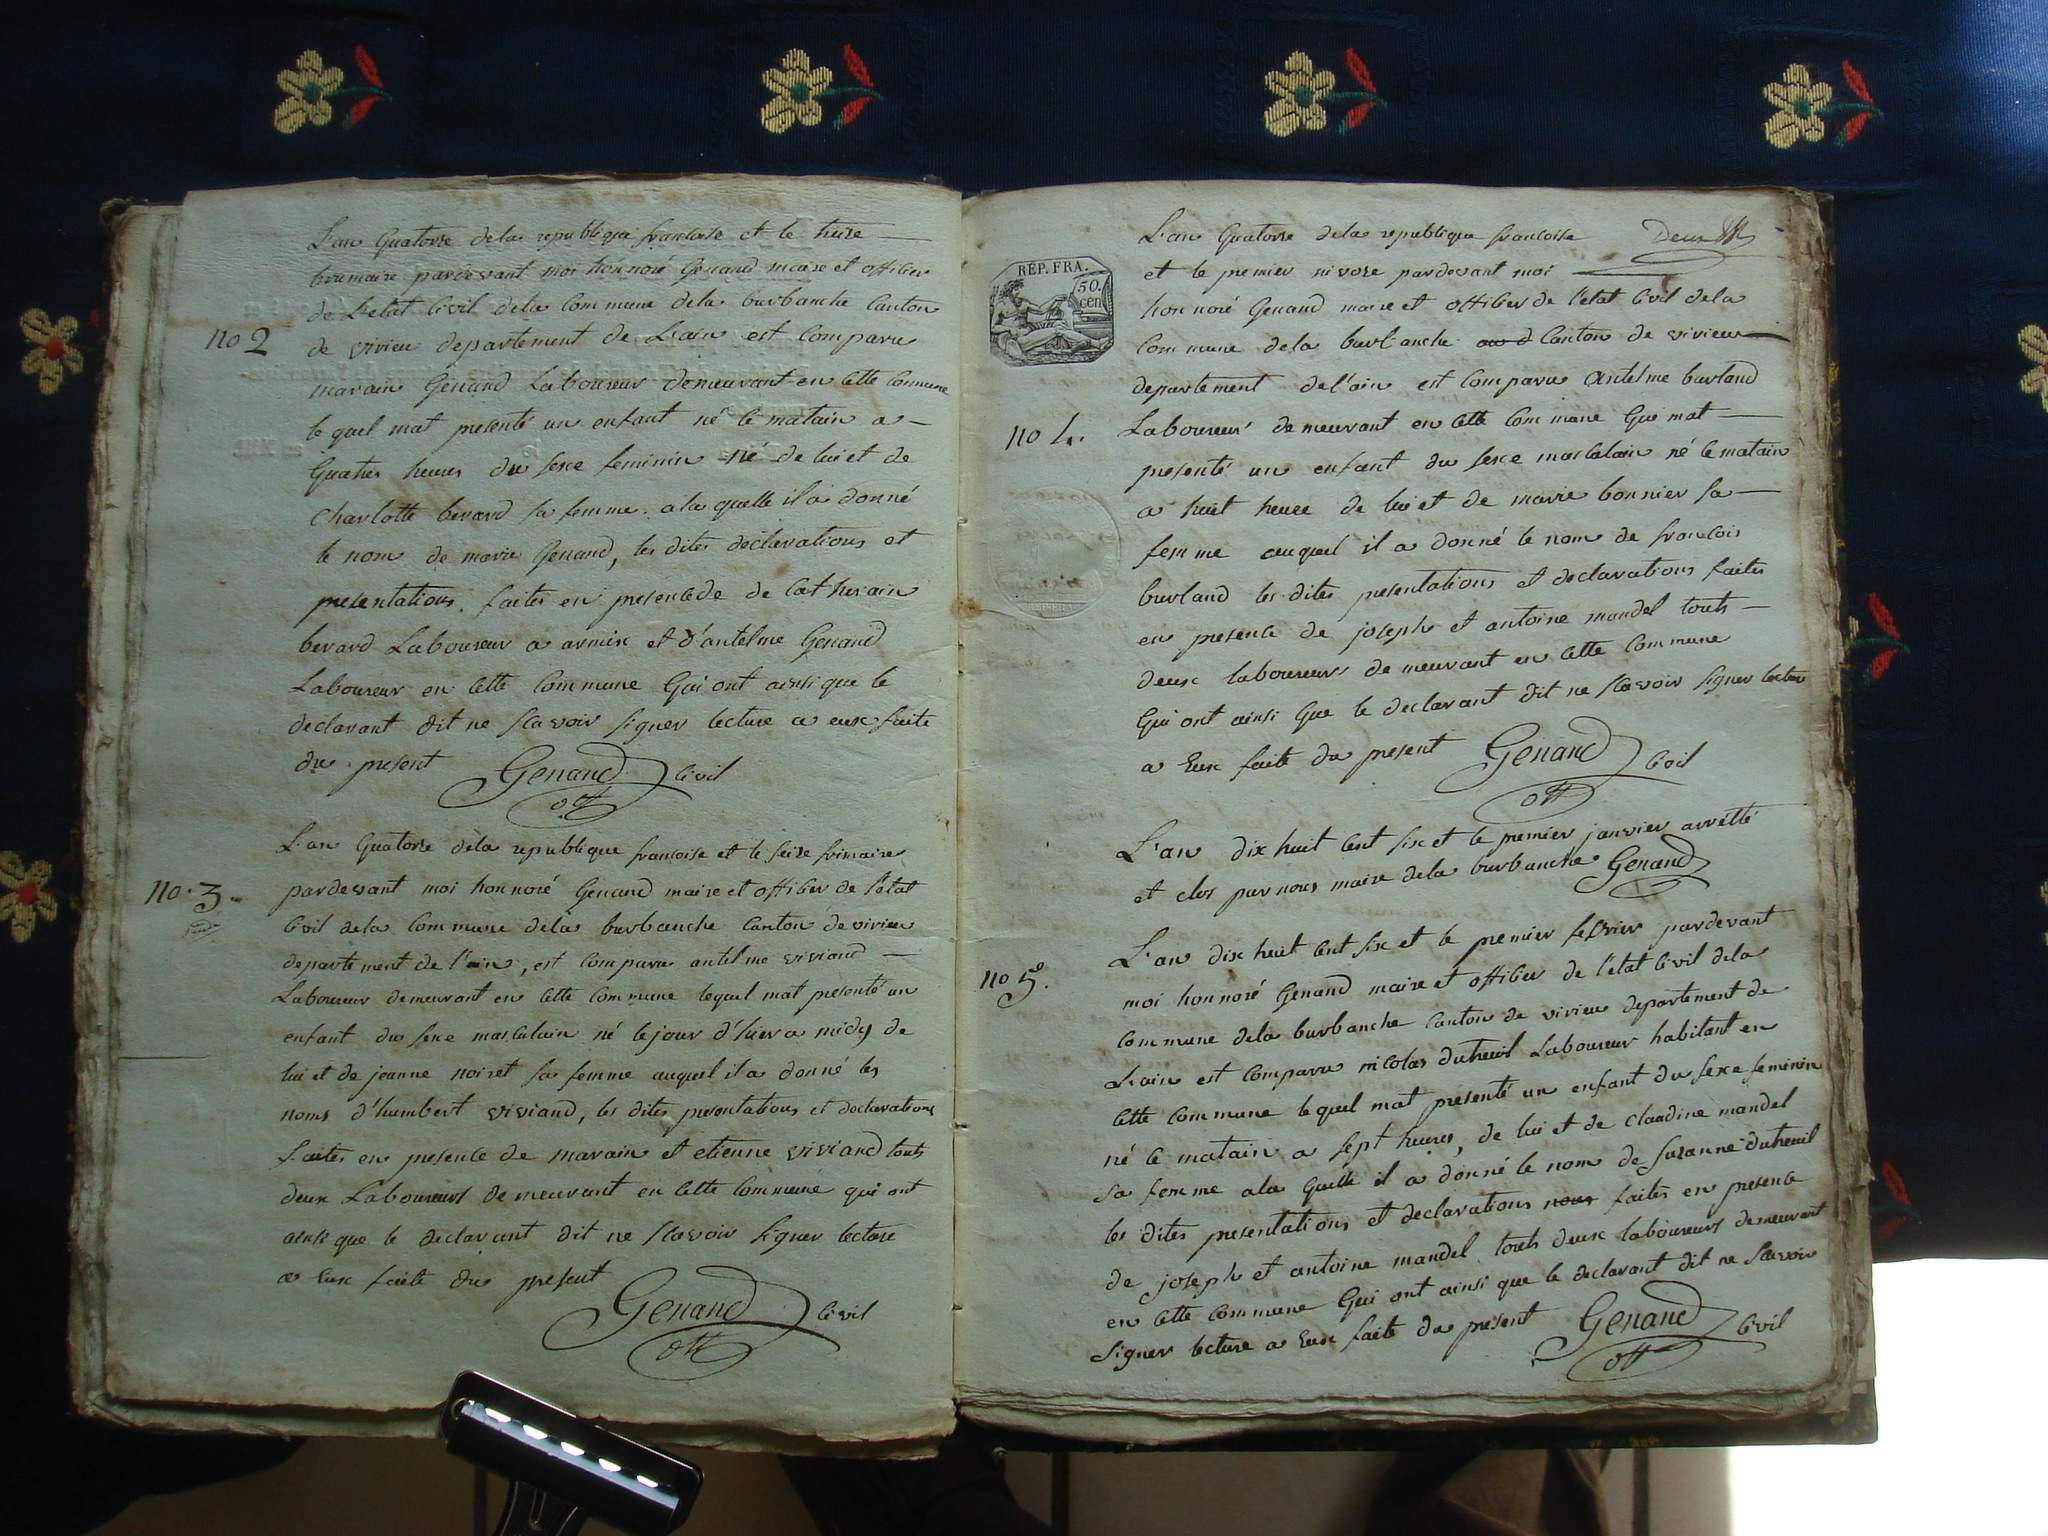 L'an Quatorse dela republique francoise et le treize
brumaire pardevant moi honnoré Genand maire et offisier
de L'etat Civil dela Commune dela burbanche Canton
de virieu departement de L'ain est Comparu
no 2
marain Genand Laboureur demeurant en Cette Commune
le quel mat presenté un enfant né le matain a
Quatres heures du sexe feminin né de lui et de
Charlotte berard sa femme. a la quelle il a donné
le nom de marie Genand, les dites declarations et
presentations. faites en presencede de Catherain
berard Laboureur a armix et d'antelme Genand
Laboureur en Cette Commune Qui ont ainsi que le
declarant dit ne scavoir signer lecture a eux faite
du present Genand off Civil
L'an Quatorse dela republique francoise et le seize frimaire
no. 3.
pardevant moi honnoré Genand maire et offisier de l'etat
Civil dela Commune dela burbanche Canton de virieu
departement de l'ain, est Comparu antelme viviand
Laboureur demeurant en Cette Commune lequel mat presenté un
enfant du sexe masculain né le jour d'hier a midy de
lui et de jeanne noiret sa femme auquel il a donné les
noms d'humbert viviand, les dites presentations et declarations
faites en presence de marain et etienne viviand touts
deux Laboureurs demeurant en Cette Commune qui ont
ainsi que le declarant dit ne scavoir signer lecture
a Eux faite du present
Genand off Civil
Deux
L'an Quatorse dela republique francoise
RÉP. FRA.
50.
cen
et le premier nivose pardevant moi
honnoré Genand maire et offisier de l'etat Civil dela
Commune dela burbanche Canton de virieu
departement de l'ain est Comparu antelme burland
no 4.
Laboureur demeurant en Cette Commune Qui mat
presenté un enfant du sexe masculain né le matain
a huit heure de lui et de marie bonnier sa
femme auquel il a donné le nom de francois
burland les dites presentations et declarations faites
en presence de joseph et antoine mandel touts
deux laboureurs demeurant en Cette Commune
Qui ont ainsi Que le declarant dit ne scavoir signer lecture
a Eux faite du present Genand off Civil
L'an dix huit Cent six et le premier janvier arretté
et clos par nous maire dela burbanche Genand
L'an dix huit Cent six et le premier fefrier pardevant
no 5.
moi honnoré Genand maire et offisier de l'etat Civil dela
Commune dela burbanche Canton de virieu departement de
L'ain est Comparu nicolas dutreuil Laboureur habitant en
Cette Commune lequel mat presenté un enfant du sexe feminin
né le matain a sept heures, de lui et de Claudine mandel
sa femme a la Quelle il a donné le nom de suzanne dutreuil
les dites presentations et declarations nous faites en presence
de joseph et antoine mandel touts deux laboureurs demeurant
en Cette Commune Qui ont ainsi que le declarant dit ne scavoir
signer lecture a Eux faite du present Genand off Civil